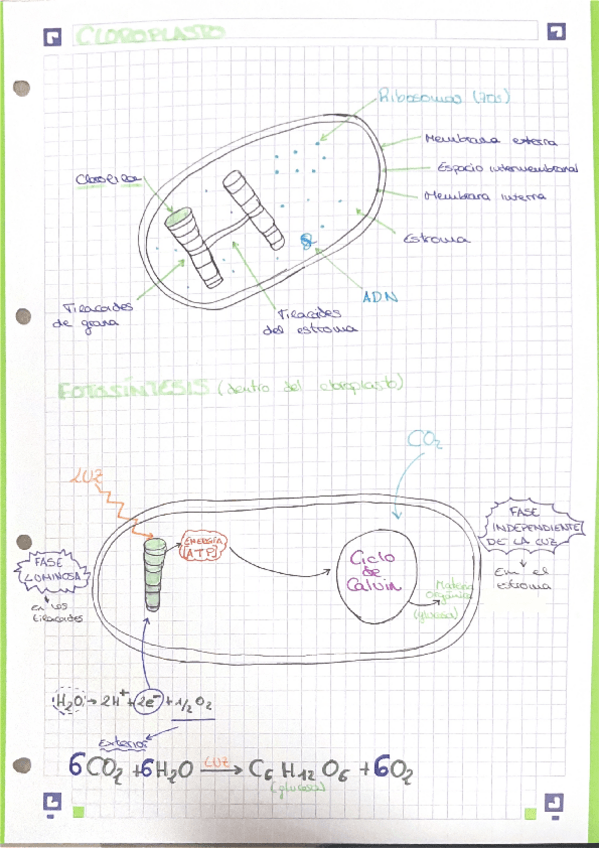 CLOROPLASTO
Ribosomas (70s)
Membrana externa
Espacio intermembranal
Membrana interna
Clorofila
Estroma
ADN
Tilacoides
de grana
Tilacoides
del estroma
FOTOSÍNTESIS (dentro del cloroplasto)
CO2
LUZ
FASE
INDEPENDIENTE
DE LA LUZ
ENERGÍA
ATP
Ciclo
de
Calvin
FASE
LUMINOSA
En los
tilacoides
En el
estroma
Materia
Orgánica
(glucosa)
H2O → 2H+ + 2e- + 1/2 O2
Exterior
6CO2 + 6H2O LUZ → C6 H12 O6 + 6O2
(glucosa)